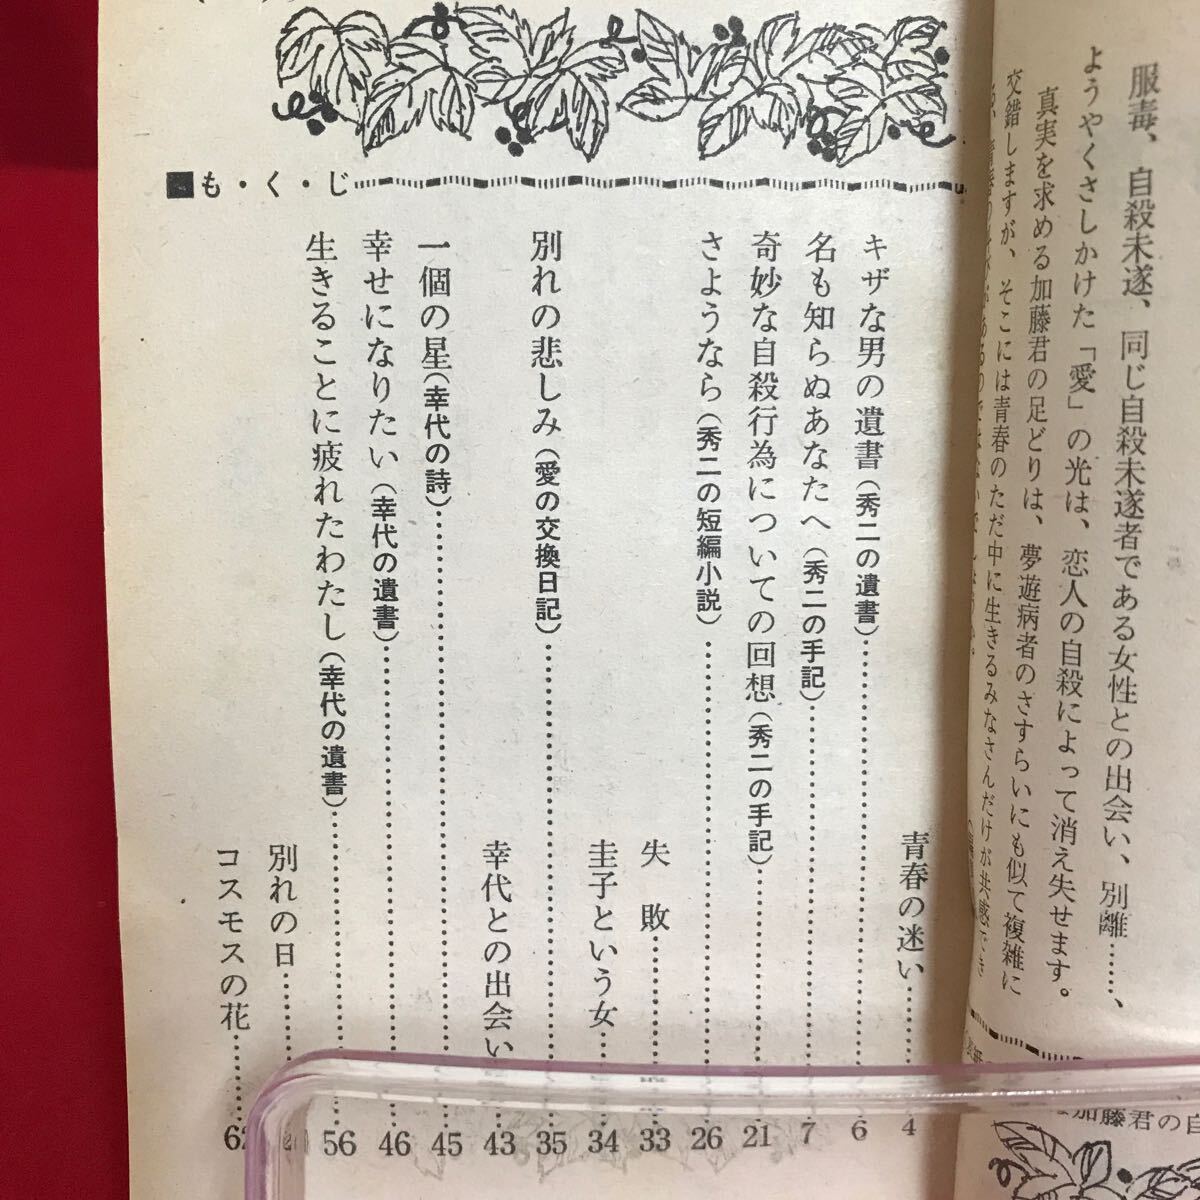 服毒、自殺未遂、同じ自殺未遂者である女性との出会い、別離……、
ようやくさしかけた「愛」の光は、恋人の自殺によって消え失せます。
真実を求める加藤君の足どりは、夢遊病者のさすらいにも似て複雑に
交錯しますが、そこには青春のただ中に生きるみなさんだけが共感でき
な加藤君の自
■も・く・じ
青春の迷い……4
キザな男の遺書（秀二の遺書）……6
名も知らぬあなたへ（秀二の手記）……7
奇妙な自殺行為についての回想（秀二の手記）……21
さようなら（秀二の短編小説）……26
失敗……33
圭子という女……34
別れの悲しみ（愛の交換日記）……35
幸代との出会い……43
一個の星（幸代の詩）……45
幸せになりたい（幸代の遺書）……46
生きることに疲れたわたし（幸代の遺書）……56
別れの日……
コスモスの花……62